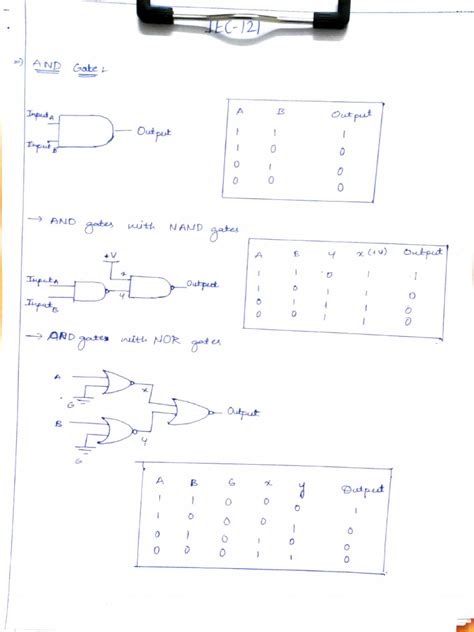 IEC-121
⇒ AND Gate:
Input A
Input B
Output
A B Output
1 1 1
1 0 0
0 1 0
0 0 0
→ AND gates with NAND gates
+V
Input A
Input B
x
y
Output
A B y x(+V) Output
1 1 0 1 1
1 0 1 1 0
0 1 1 1 0
0 0 1 1 0
→ AND gates with NOR gates
A
G
B
G
x
y
Output
A B G x y Output
1 1 0 0 0 1
1 0 0 0 1 0
0 1 0 1 0 0
0 0 0 1 1 0